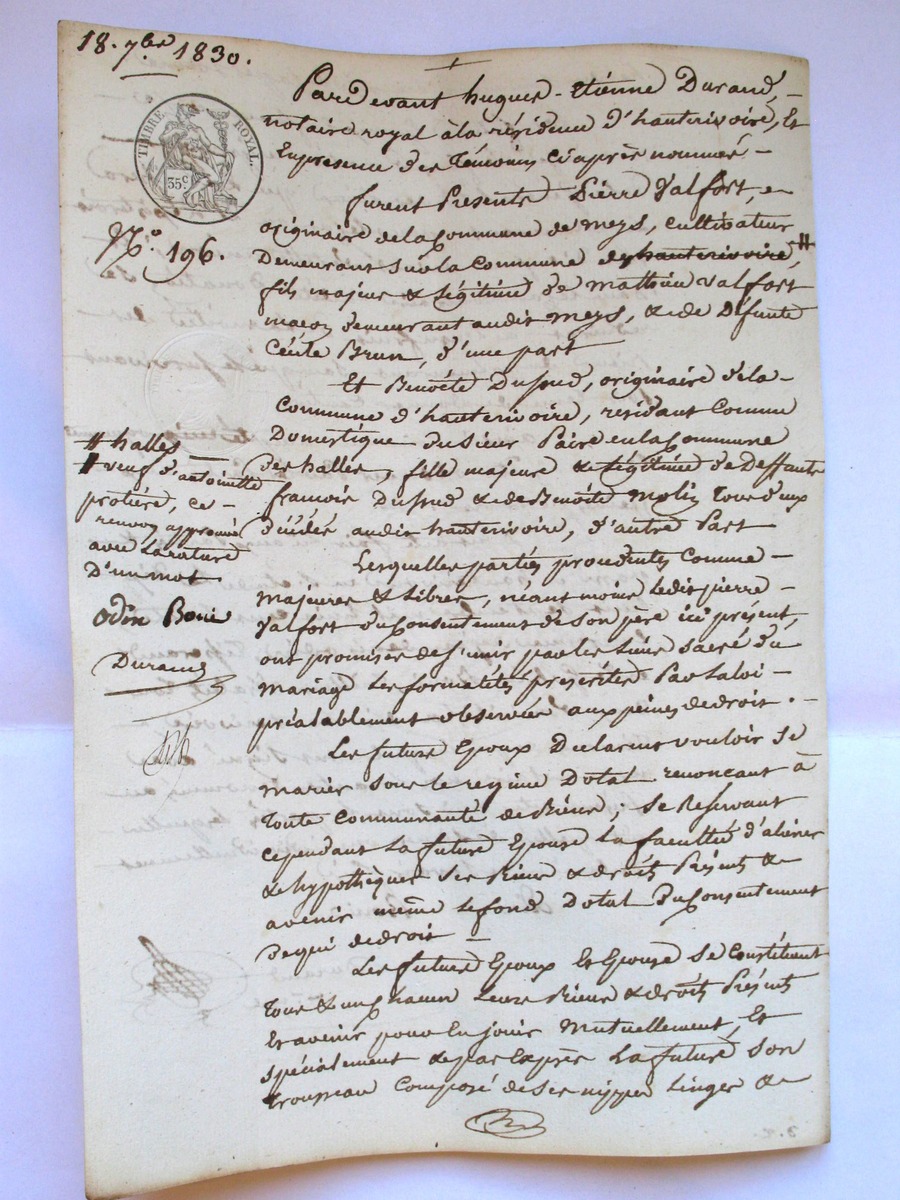 18. 7bre 1830.
TIMBRE ROYAL.
35.c
N.o 196.
Pardevant hugues-Etienne Durand,
notaire royal à la résidence d'hauterivoire, Et
En présence des Témoins ci après nommés
furent Présents Pierre Valfort,
originaire de la Commune de meys, cultivateur
Demeurant sur la Commune des hauterivoire #
fils majeur & légitime de mathieu Valfort
maçon demeurant audit meys, & de Défunte
Cécile Brun, d'une part
Et Benoite Dupud, originaire de la
Commune d'hauterivoire, résidant Comme
Domestique du sieur Paire en la Commune
des halles, fille majeure & légitime de Deffunts
françois Dupud & de Benoite molin Tous deux
Décédés audit hauterivoire, d'autre Part
Lesquelles parties procedentes Comme
majeures & libres, néant moins ledit pierre
Valfort du Consentement de son père ici présent,
ont promises de s'unir par les liens sacré du
mariage les formalités prescrites Par la loi
préalablement observées aux peines de droit.
Les futurs Epoux Déclarent vouloir se
marier sous le regime Dotal renonçant à
Toute Communauté de Biens; se Réservant
cependant la future Epouse la facultée d'aliéner
& hypothéquer ses Biens & droits Présents &
avenir même le fond Dotal du Consentement
de qui de droit
Les futurs Epoux Et Epouse se Constituent
Tous & un chacun leurs Biens & droits Présents
Et avenir pour En jouir mutuellement, Et
spécialement & par Exprès la future son
Trousseau Composé de ses nippes linges &
# halles
# veuf d'antoinette
protiere, ce
renvoi approuvé
avec la rature
D'un mot
Odin Boni
Durand